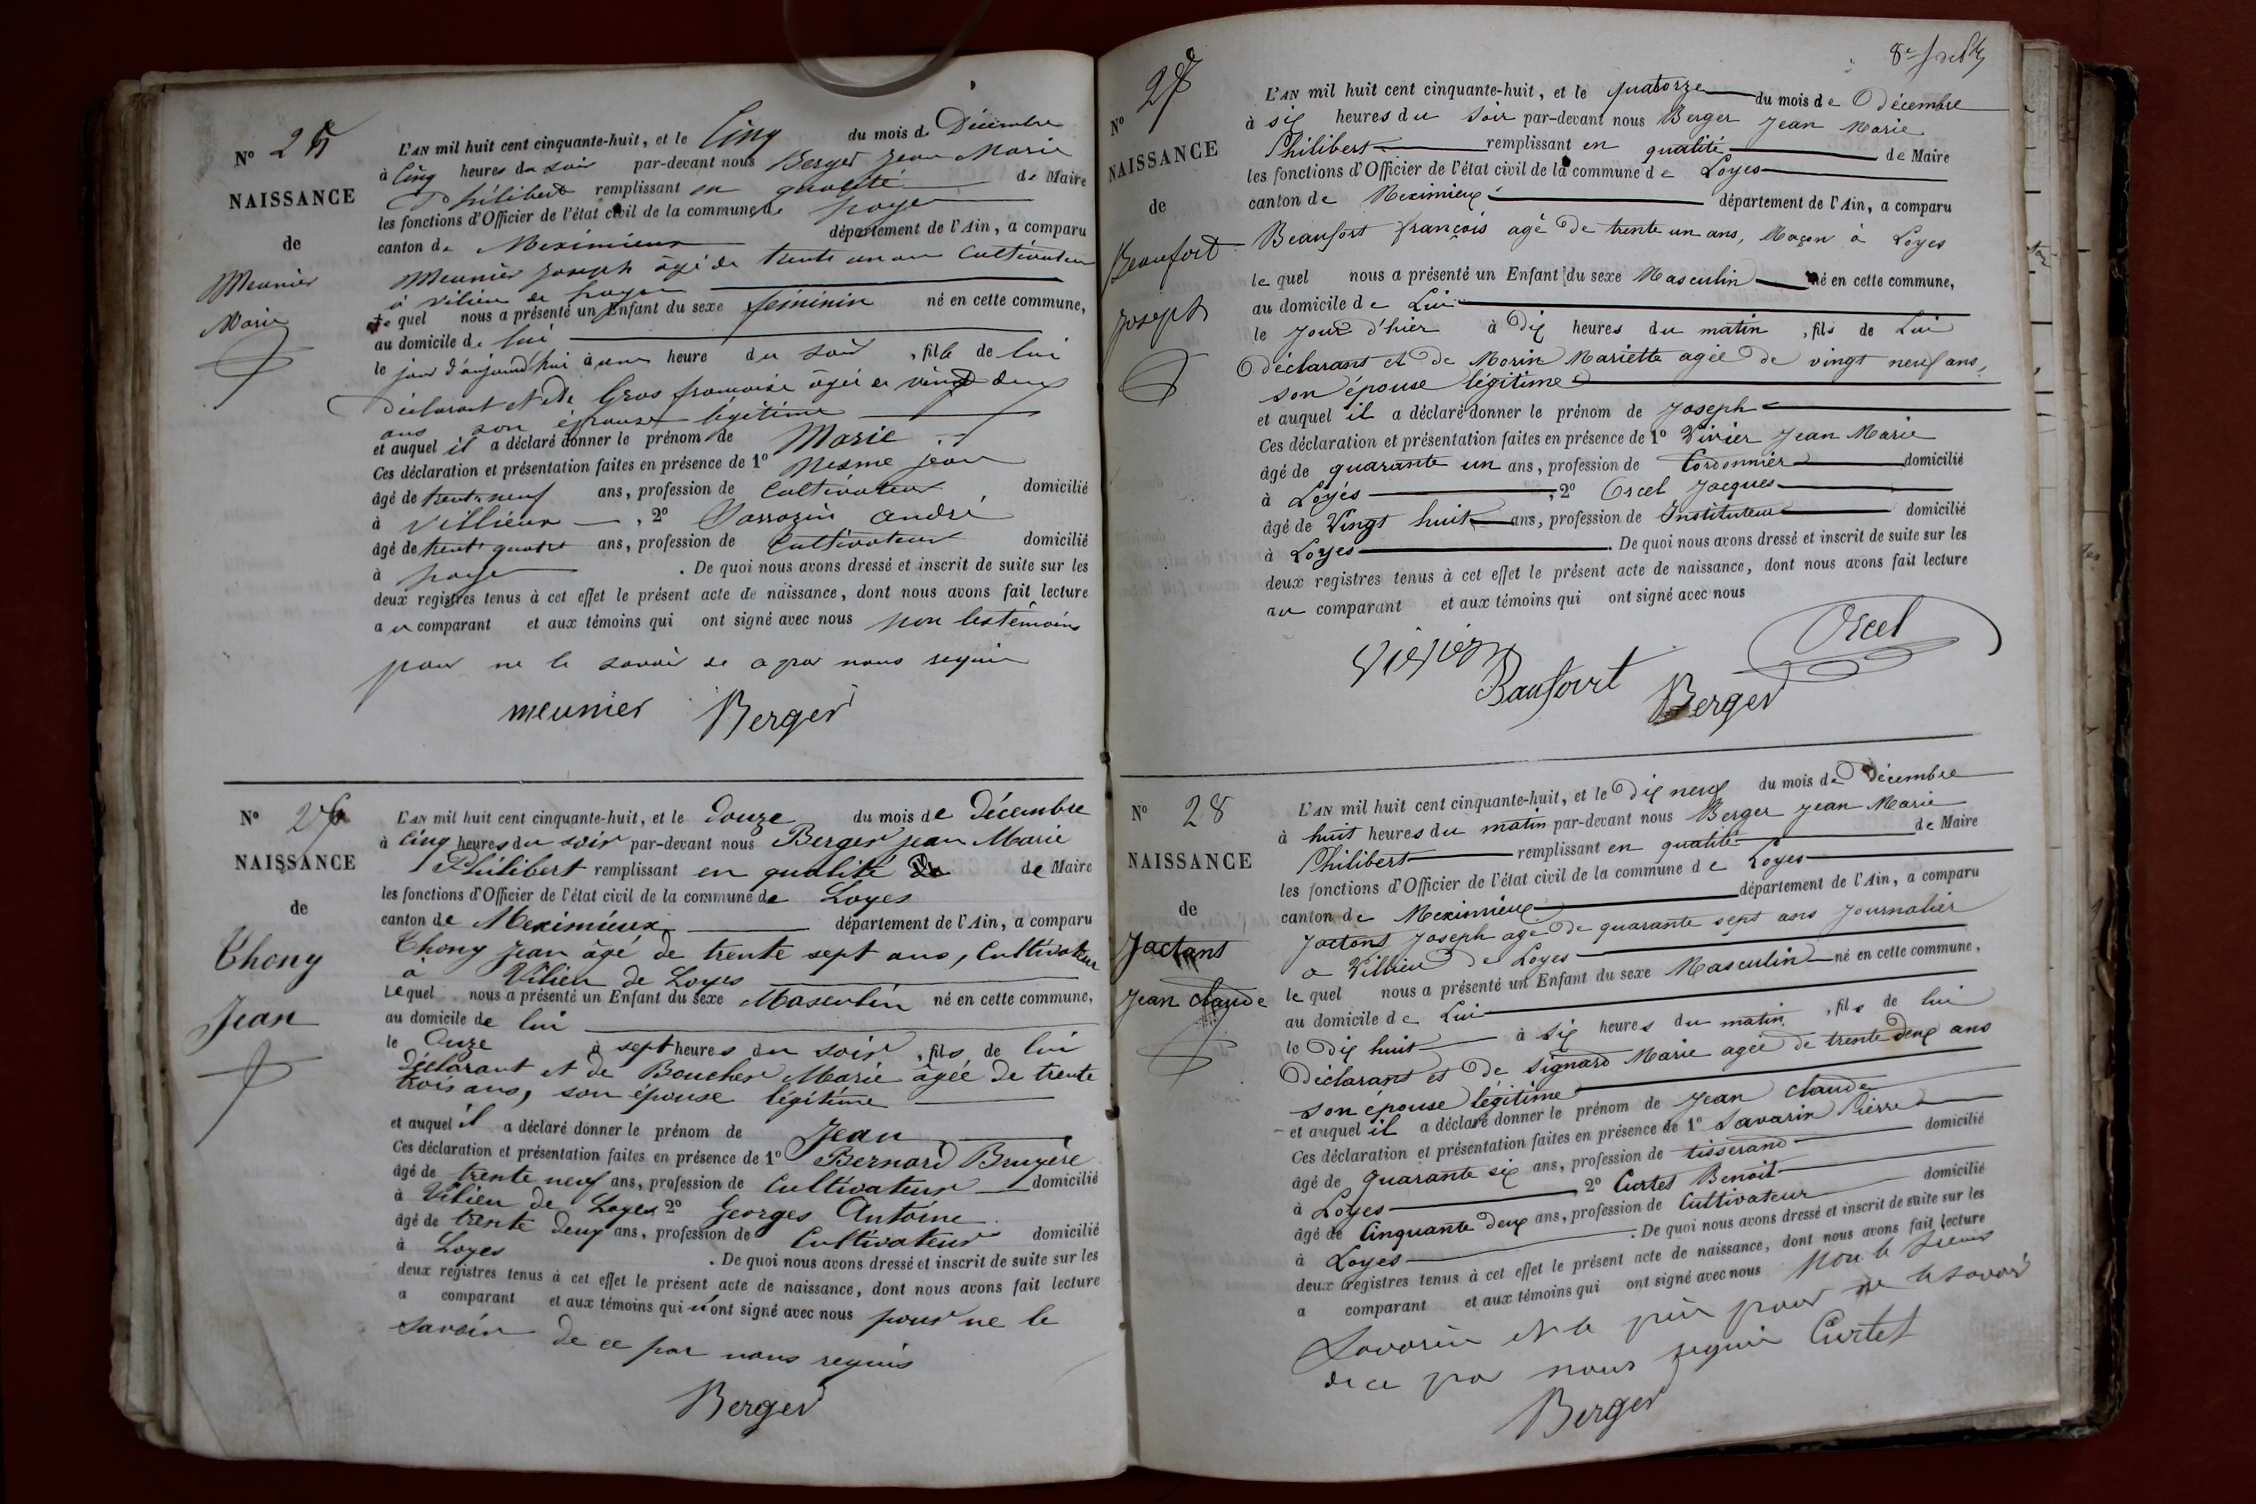 N° 25
NAISSANCE
de
Meunier
Marie
L'AN mil huit cent cinquante-huit, et le Cinq du mois de Décembre
à Cinq heures du soir par-devant nous Berger Jean Marie
Philibert remplissant en qualité de Maire
les fonctions d'Officier de l'état civil de la commune de Loyes
canton de Meximieux département de l'Ain, a comparu
Meunier Joseph âgé de trente un ans Cultivateur
à Vilieu de Loyes
le quel nous a présenté un Enfant du sexe féminin né en cette commune,
au domicile de lui
le jour d'aujourd'hui à une heure du soir, fille de lui
Déclarant et de Gros francoise âgée de vingt deux
ans son épouse légitime
et auquel il a déclaré donner le prénom de Marie
Ces déclaration et présentation faites en présence de 1° Nesme Jean
âgé de trente neuf ans, profession de Cultivateur, domicilié
à Villieux, 2° Sarrazin André
âgé de trente quatre ans, profession de Cultivateur domicilié
à Loyes. De quoi nous avons dressé et inscrit de suite sur les
deux registres tenus à cet effet le présent acte de naissance, dont nous avons fait lecture
au comparant et aux témoins qui ont signé avec nous non les témoins
pour ne le savoir de ce par nous requis
meunier Berger
N° 26
NAISSANCE
de
Thony
Jean
L'AN mil huit cent cinquante-huit, et le Douze du mois de Décembre
à Cinq heures du soir par-devant nous Berger Jean Marie
Philibert remplissant en qualité de Maire
les fonctions d'Officier de l'état civil de la commune de Loyes
canton de Meximieux département de l'Ain, a comparu
Thony Jean âgé de trente sept ans, Cultivateur
à Vilieu de Loyes
Le quel nous a présenté un Enfant du sexe Masculin né en cette commune,
au domicile de lui
le Onze à sept heures du soir, fils de lui
Déclarant et de Boucher Marie âgée de trente
trois ans, son épouse légitime
et auquel il a déclaré donner le prénom de Jean
Ces déclaration et présentation faites en présence de 1° Bernard Bruyère
âgé de trente neuf ans, profession de Cultivateur domicilié
à Vilieu de Loyes 2° Georges Antoine
âgé de trente deux ans, profession de Cultivateur domicilié
à Loyes. De quoi nous avons dressé et inscrit de suite sur les
deux registres tenus à cet effet le présent acte de naissance, dont nous avons fait lecture
a comparant et aux témoins qui n'ont signé avec nous pour ne le
savoir de ce par nous requis
Berger
N° 27
NAISSANCE
de
Beaufort
Joseph
L'AN mil huit cent cinquante-huit, et le quatorze du mois de Décembre
à six heures du soir par-devant nous Berger Jean Marie
Philibert remplissant en qualité de Maire
les fonctions d'Officier de l'état civil de la commune de Loyes
canton de Meximieux département de l'Ain, a comparu
Beaufort françois agé de trente un ans, Maçon à Loyes
le quel nous a présenté un Enfant du sexe Masculin né en cette commune,
au domicile de Lui
le Jour d'hier à Dix heures du matin, fils de Lui
Déclarant et de Morin Mariette agée de vingt neuf ans,
son épouse légitime
et auquel il a déclaré donner le prénom de Joseph
Ces déclaration et présentation faites en présence de 1° Vivier Jean Marie
âgé de quarante un ans, profession de Cordonnier domicilié
à Loyes, 2° Orcel Jacques
âgé de Vingt huit ans, profession de Instituteur domicilié
à Loyes. De quoi nous avons dressé et inscrit de suite sur les
deux registres tenus à cet effet le présent acte de naissance, dont nous avons fait lecture
au comparant et aux témoins qui ont signé avec nous
Vivier Orcel
Baufourt Berger
N° 28
NAISSANCE
de
Jactant
Jean Claude
L'AN mil huit cent cinquante-huit, et le Dix neuf du mois de Décembre
à huit heures du matin par-devant nous Berger Jean Marie
Philibert remplissant en qualité de Maire
les fonctions d'Officier de l'état civil de la commune de Loyes
canton de Meximieux département de l'Ain, a comparu
Jactant Joseph agé de quarante sept ans Journalier
à Villieu de Loyes
le quel nous a présenté un Enfant du sexe Masculin né en cette commune,
au domicile de Lui
le Dix huit à six heures du matin, fils de lui
Déclarant et de Signard Marie agée de trente deux ans
son épouse légitime
et auquel il a déclaré donner le prénom de Jean Claude
Ces déclaration et présentation faites en présence de 1° Savarin Pierre
âgé de Quarante six ans, profession de tisserand domicilié
à Loyes 2° Curtet Benoit
âgé de Cinquante deux ans, profession de Cultivateur domicilié
à Loyes. De quoi nous avons dressé et inscrit de suite sur les
deux registres tenus à cet effet le présent acte de naissance, dont nous avons fait lecture
a comparant et aux témoins qui ont signé avec nous Non le
Savarin et le père pour ne le savoir
de ce par nous requis Curtet
Berger